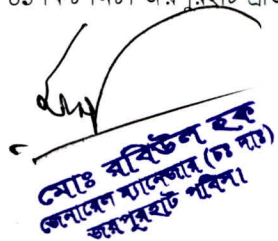 মোঃ রবিউল হক
জেনারেল ম্যানেজার (চঃ দাঃ)
জয়পুরহাট পবিস।